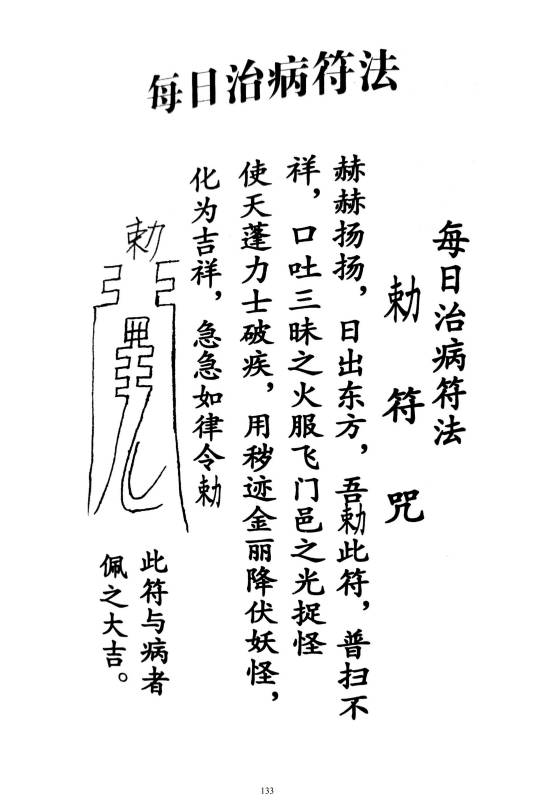 每日治病符法
每日治病符法
勅符咒
赫赫扬扬，日出东方，吾勅此符，普扫不
祥，口吐三昧之火服飞门邑之光捉怪
使天蓬力士破疾，用秽迹金丽降伏妖怪，
化为吉祥，急急如律令勅
勅
此符与病者
佩之大吉。
133